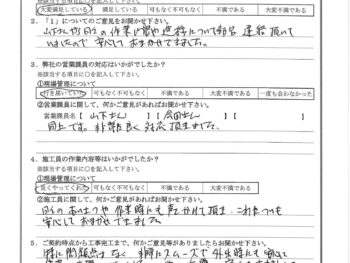 大変満足している 満足している 可も無く不可も無く 不満である 大変不満である
2.「1」についてのご意見をお聞かせ下さい。
山下さんが日々の作業内容や進捗について報告、連絡頂いて
いましたので安心しておまかせできました。
3. 弊社の営業課員の対応はいかがでしたか?
※該当する項目に○を記入して下さい。
①現場管理について
行き届いていた 可もなく不可もなく 不満である 大変不満である 一度も会わなかった
②営業課員に関して、何かご意見があればお聞かせ下さい。
営業課員名【 山下さん 】【 会田さん 】【 】
同上です。非常に良く対応頂きました。
4. 施工員の作業内容等はいかがでしたか?
※該当する項目に○を記入して下さい。
①現場管理について
良くやってくれた 可もなく不可もなく 不満である 大変不満である
②施工員に関して、何かご意見があればお聞かせ下さい。
日々のあいさつや作業時にも声かけて頂き、これについても
安心しておまかせできました。
5. ご契約時点から工事完工まで、何かご意見等がありましたらお聞かせ下さい。
特に問題点はなく非常にスムーズで外出時にも